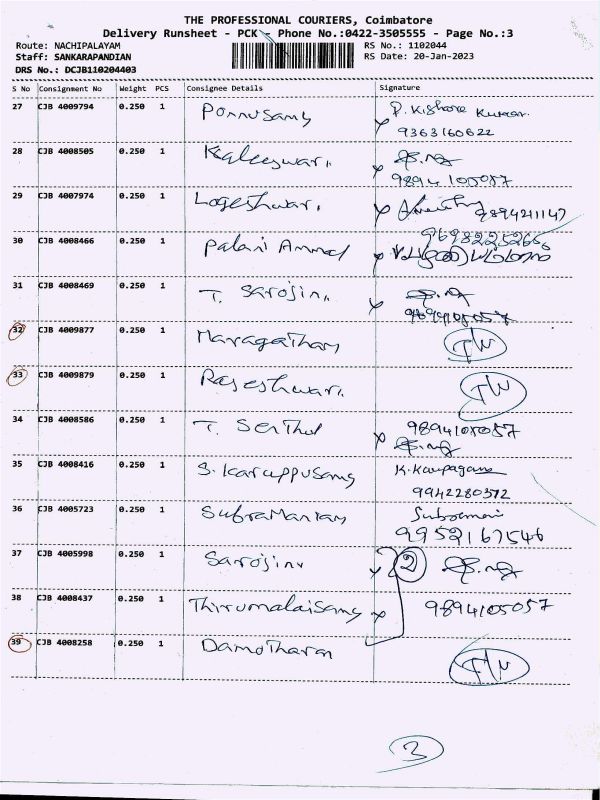 THE PROFESSIONAL COURIERS, Coimbatore
Delivery Runsheet - PCK - Phone No.:0422-3505555 - Page No.:3
Route: NACHIPALAYAM RS No.: 1102044
Staff: SANKARAPANDIAN RS Date: 20-Jan-2023
DRS No.: DCJB110204403
S No Consignment No Weight PCS Consignee Details Signature
27 CJB 4009794 0.250 1 Ponnusamy P. Kishore Kumar.
9363160622
28 CJB 4008505 0.250 1 Kaleeswari
9894105057
29 CJB 4007974 0.250 1 Logeshwari 9894211147
30 CJB 4008466 0.250 1 Palani Ammal
31 CJB 4008469 0.250 1 T. Sarojini
32 CJB 4009877 0.250 1 Maragatham
33 CJB 4009879 0.250 1 Rajeshwari
34 CJB 4008586 0.250 1 T. Senthil 9894105057
35 CJB 4008416 0.250 1 S. Karuppusamy K. Karpagam
9942280372
36 CJB 4005723 0.250 1 Subramaniam Subramani
9952167546
37 CJB 4005998 0.250 1 Sarojini 2
38 CJB 4008437 0.250 1 Thirumalaisamy 9894105057
39 CJB 4008258 0.250 1 Damotharan
3